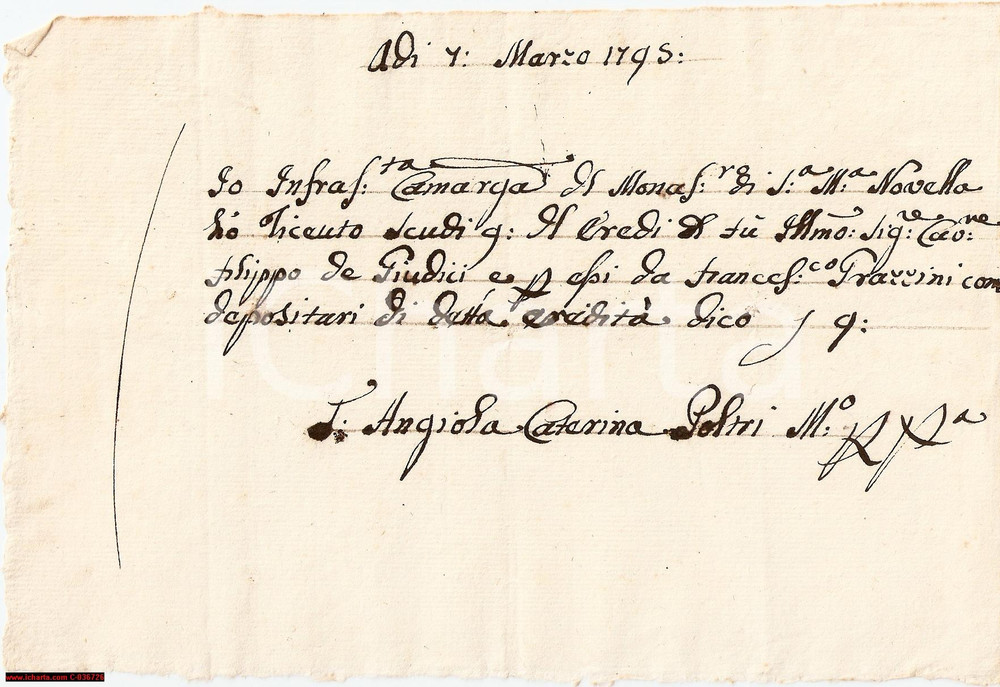 Adi 7: Marzo 1795:
Io Infras:ta Camarga dl Monas:ro di S:a M:a Novella
hò riceuto scudi 9: dl Eredi dl fù Illmo: Sig:re Cao:ne
Filippo de Giudici e p essi da Frances:co Grazzini com
depositari di detta eredità dico s 9:
S: Angiola Caterina Poltri M:o
lCharta
www.lcharta.com C-036726